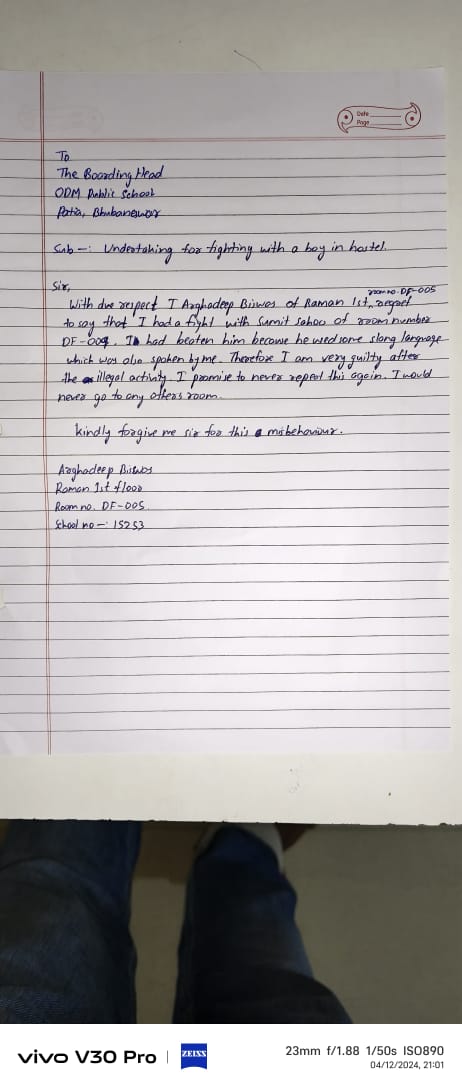 Date
Page
To
The Boarding Head
ODM Public School
Patia, Bhubaneswar
Sub -: Undertaking for fighting with a boy in hostel.
Sir,
room no. DF-005
With due respect I Arghadeep Biswas of Raman 1st, regret
to say that I had a fight with Sumit Sahoo of room number
DF-009. I had beaten him because he used some slang language
which was also spoken by me. Therefore I am very guilty after
the illegal activity. I promise to never repeat this again. I would
never go to any others room.
Kindly forgive me sir for this misbehaviour.
Arghadeep Biswas
Raman 1st floor
Room no. DF-005
School no -: 15253
vivo V30 Pro | ZEISS
23mm f/1.88 1/50s ISO890
04/12/2024, 21:01